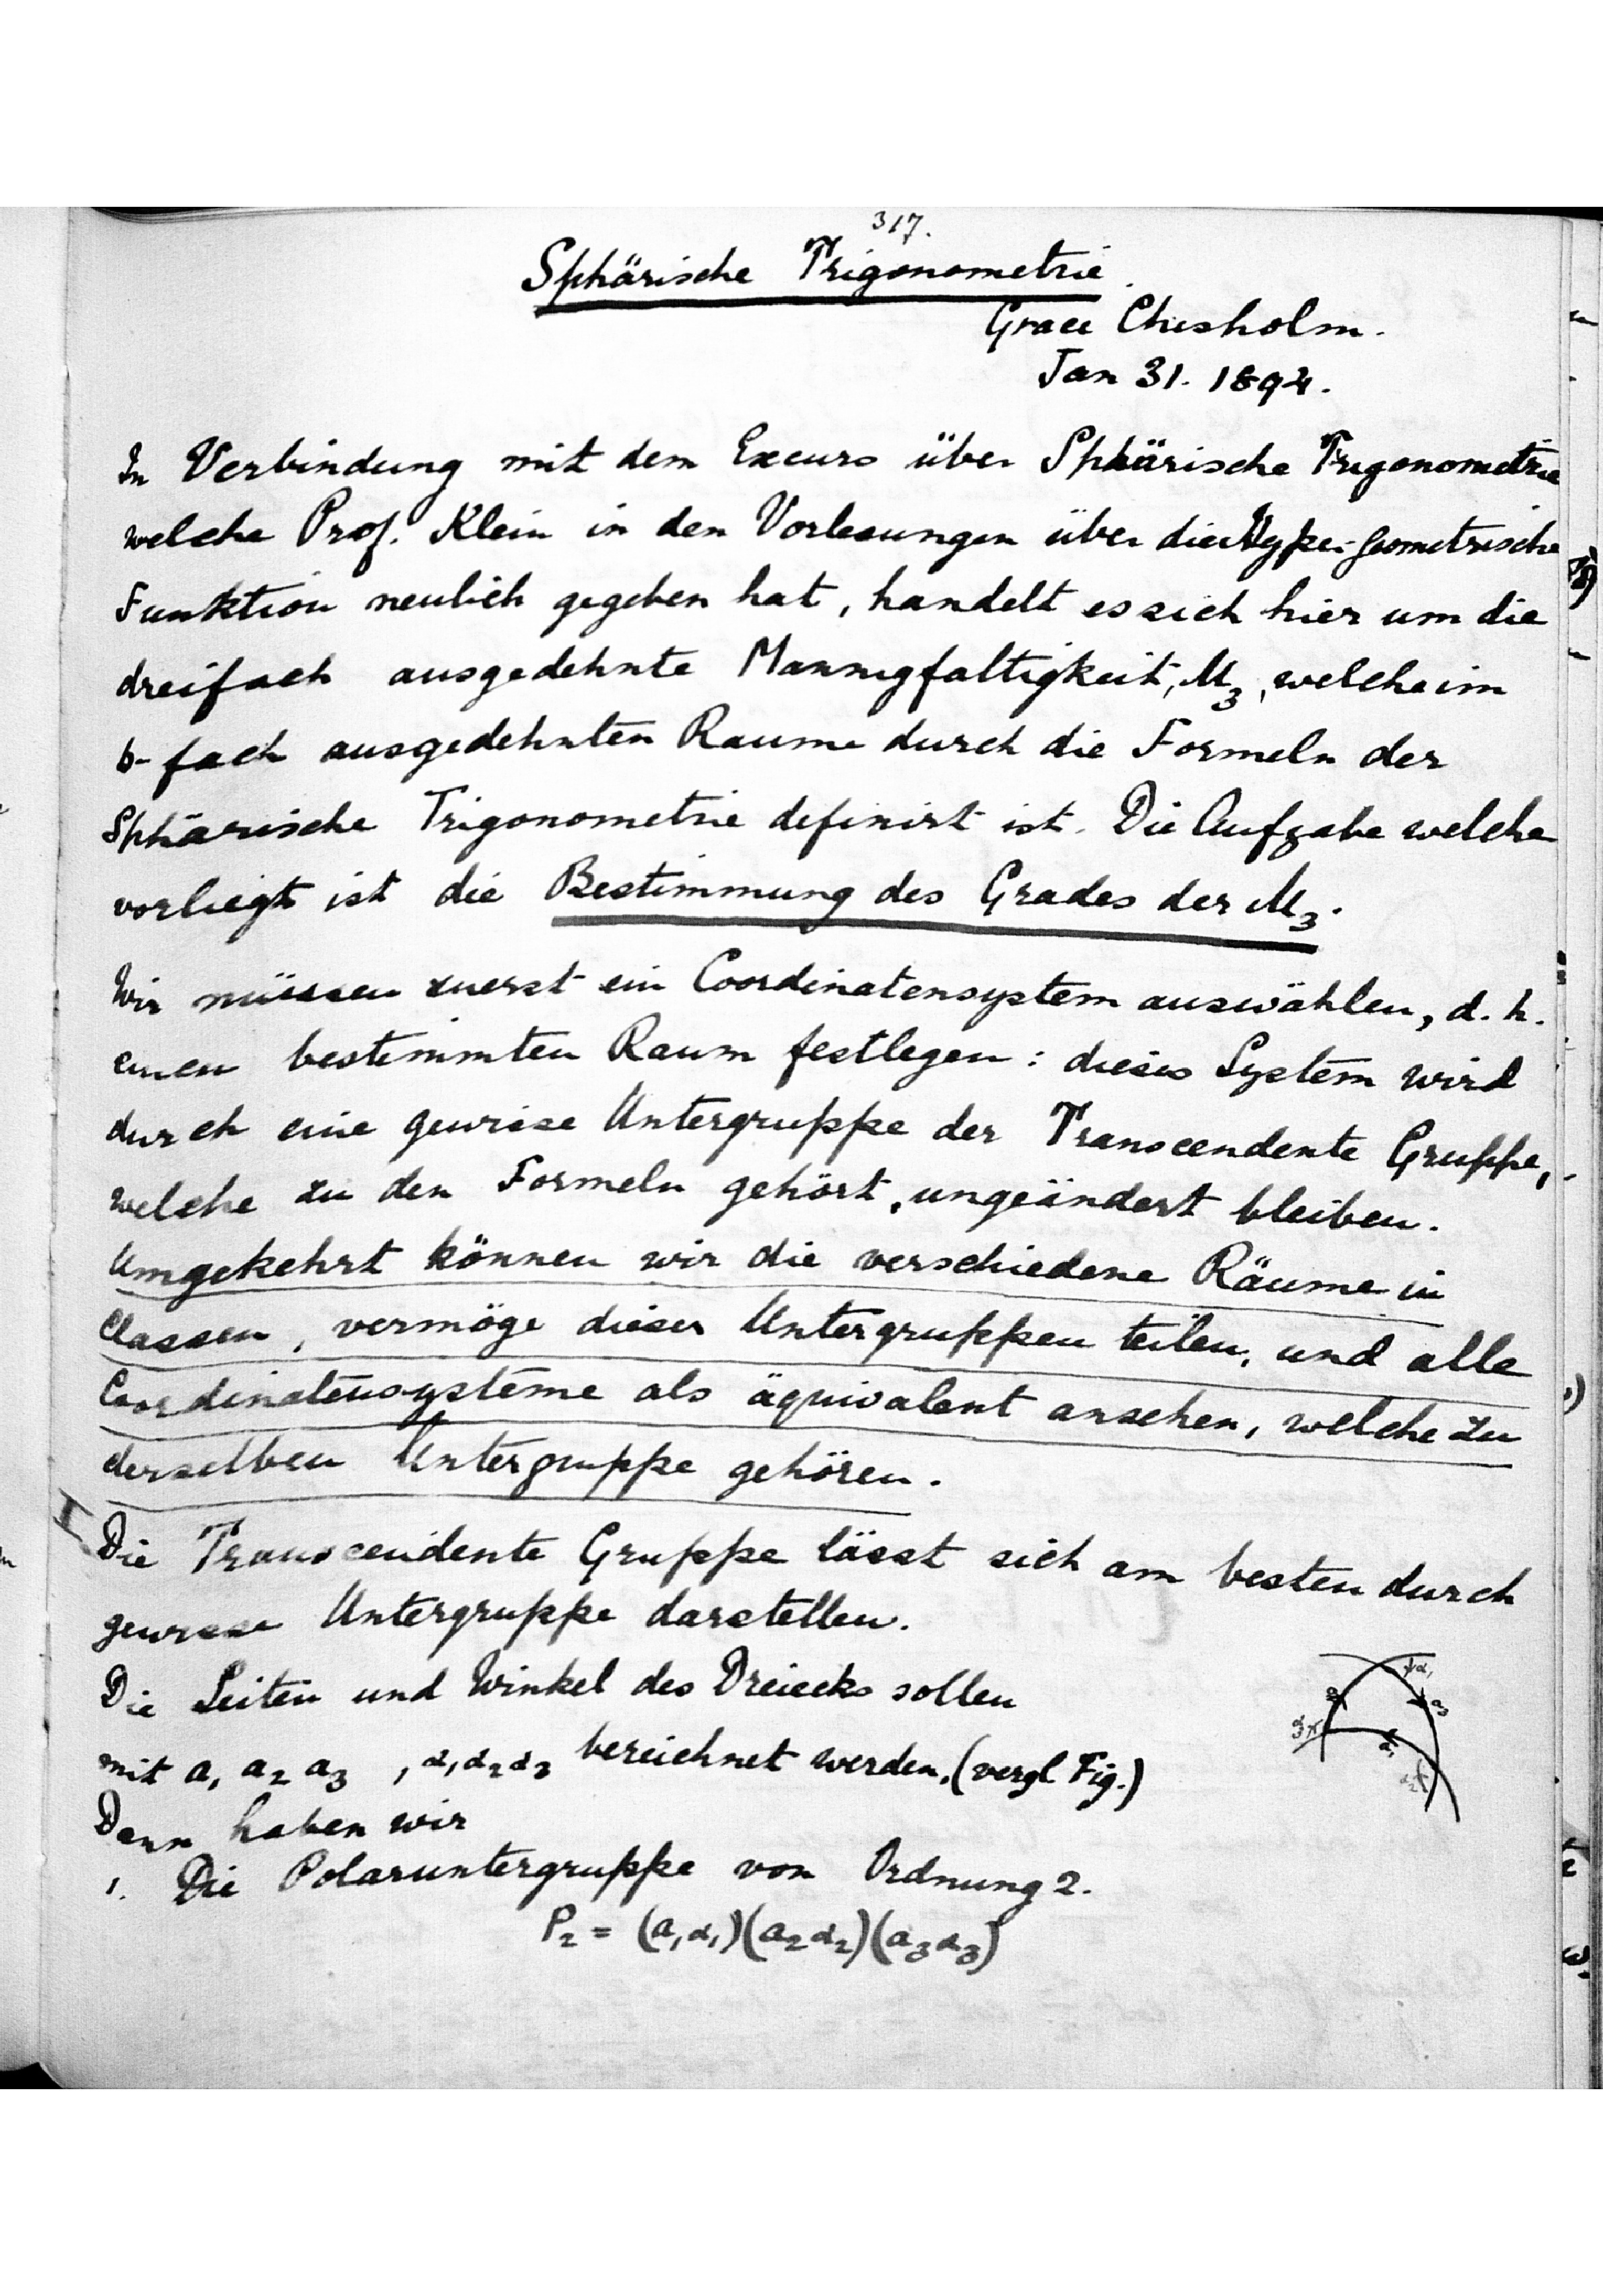 317.
Sphärische Trigonometrie.
Grace Chisholm.
Jan 31. 1894.
In Verbindung mit dem Excurs über Sphärische Trigonometrie
welche Prof. Klein in den Vorlesungen über die Hyper-geometrische
Funktion neulich gegeben hat, handelt es sich hier um die
dreifach ausgedehnte Mannigfaltigkeit, M₃, welche im
6-fach ausgedehnten Raume durch die Formeln der
Sphärische Trigonometrie definirt ist. Die Aufgabe welche
vorliegt ist die Bestimmung des Grades der M₃.
Wir müssen zuerst ein Coordinatensystem auswählen, d. h.
einen bestimmten Raum festlegen: dieses System wird
durch eine gewisse Untergruppe der Transcendente Gruppe,
welche zu den Formeln gehört, ungeändert bleiben.
Umgekehrt können wir die verschiedene Räume in
Classen, vermöge dieser Untergruppen teilen, und alle
Coordinatensysteme als äquivalent ansehen, welche zu
derselben Untergruppe gehören.
I Die Transcendente Gruppe lässt sich am besten durch
gewisse Untergruppe darstellen.
Die Seiten und Winkel des Dreiecks sollen
mit a₁ a₂ a₃, α₁ α₂ α₃ bezeichnet werden. (vergl Fig.)
Dann haben wir
1. Die Polaruntergruppe von Ordnung 2.
P₂ = (a₁α₁)(a₂α₂)(a₃α₃)
α₁
a₂
a₃
α₃
a₁
α₂